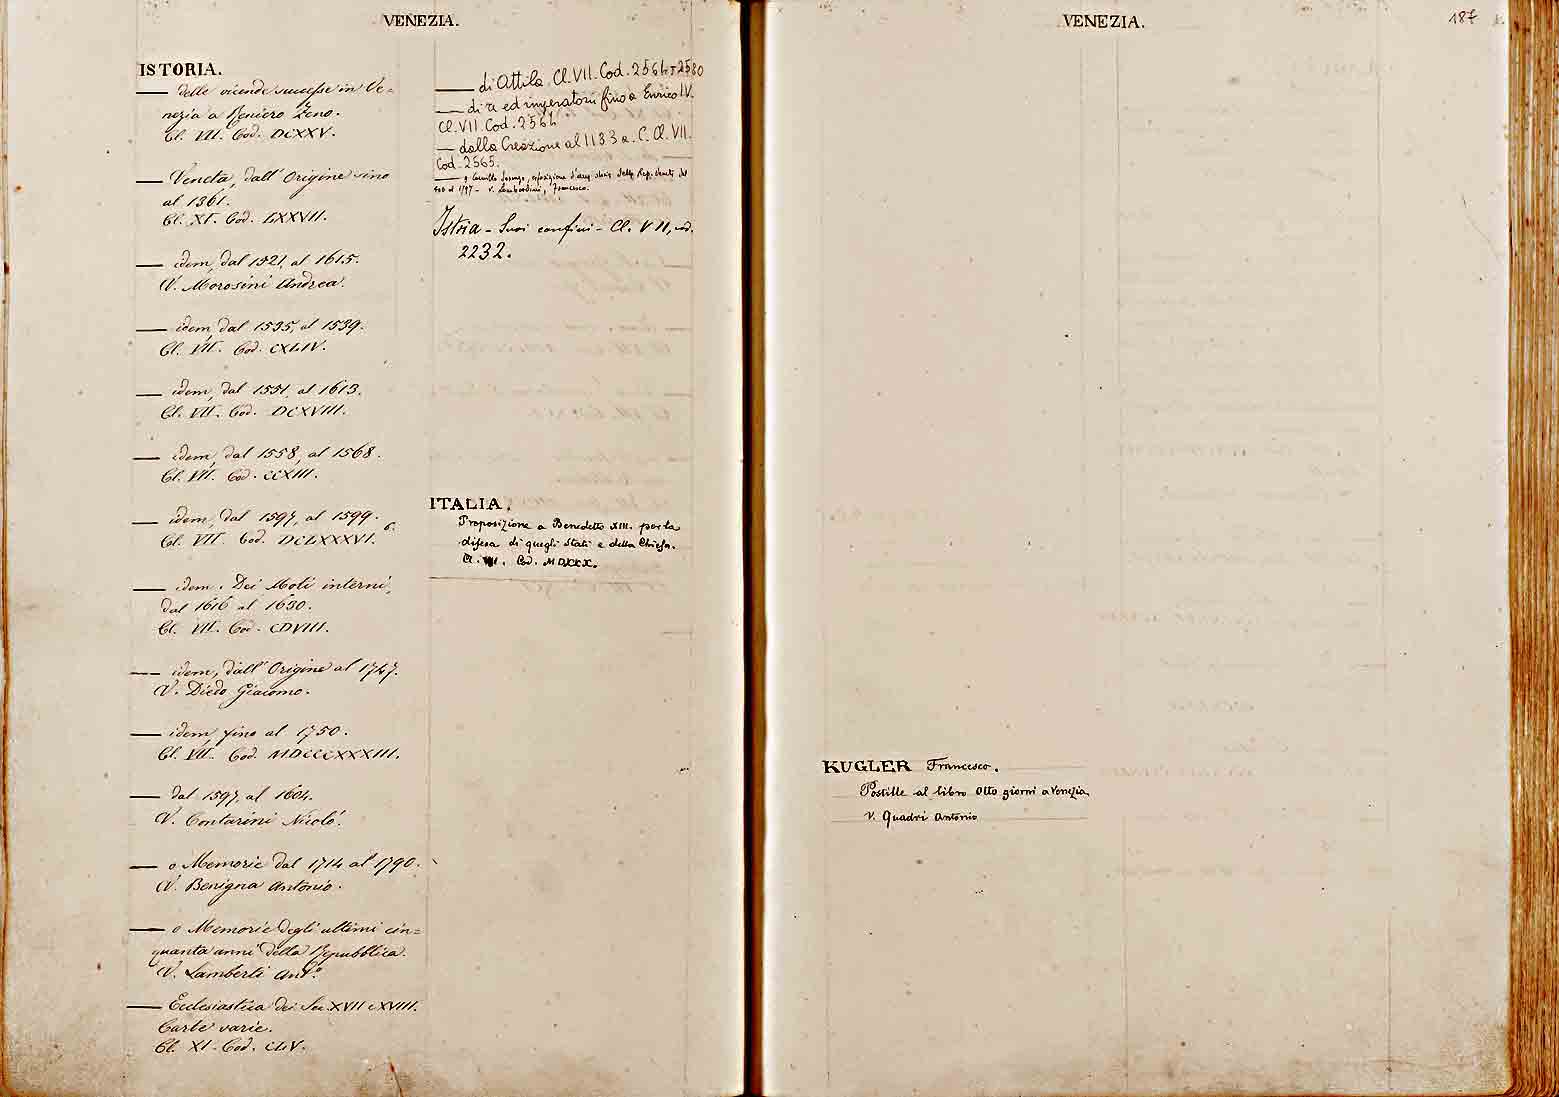 VENEZIA.
ISTORIA.
— delle vicende successe in Ve=
nezia a Reniero Zeno.
Cl. VII. Cod. DCXXV.
— Veneta, dall' Origine sino
al 1361.
Cl. XI. Cod. LXXVII.
— idem, dal 1521, al 1615.
V. Morosini Andrea.
— idem, dal 1535, al 1539.
Cl. VII. Cod. CXLIV.
— idem, dal 1551, al 1613.
Cl. VII. Cod. DCXVIII.
— idem, dal 1558, al 1568.
Cl. VII. Cod. CCXIII.
— idem, dal 1597, al 1599.
Cl. VII Cod. DCLXXXVI. 6.
— idem. Dei Moti interni,
dal 1616 al 1630.
Cl. VII. Cod. CDVIII.
— idem, dall' Origine al 1747.
V. Diedo Giacomo.
— idem, fino al 1750.
Cl. VII. Cod. MDCCCXXXIII.
— dal 1597, al 1604.
V. Contarini Nicoló.
— o Memorie dal 1714 al 1790.
V. Benigna Antonio.
— o Memorie degli ultimi cin=
quanta anni della Repubblica.
V. Lamberti Antº.
— Ecclesiastica dei Sec. XVII e XVIII.
Carte varie.
Cl. XI. Cod. CLIV.
— di Attila. Cl. VII. Cod. 2564 2580
— di re ed imperatori fino a Enrico IV.
Cl. VII. Cod. 2564
— dalla Creazione al 1133 a. C. Cl. VII.
Cod. 2565.
Camillo esposizione della Rep. Veneta dal
al 1797 - v. Lombardini, Francesco.
Istria - Suoi confini - Cl. VII, cod.
2232.
ITALIA.
Proposizione a Benedetto XIII. per la
difesa di quegli Stati e della Chiesa.
Cl. VII. Cod. MDXXX.
VENEZIA.
187
KUGLER Francesco.
Postille al libro Otto giorni a Venezia
V. Quadri Antonio